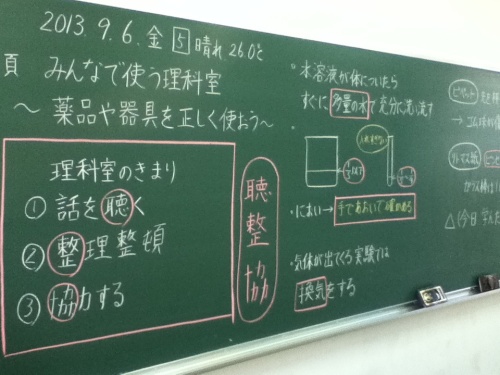 2013.9.6.金 5 晴れ 26.0℃
頁 みんなで使う理科室
～薬品や器具を正しく使おう～
理科室のきまり
① 話を聴く
② 整理整頓
③ 協力する
聴整協
・水溶液が体についたら
すぐに多量の水で充分に洗い流す
・におい→手であおいで確かめる
・気体が出てくる実験では
換気をする
ピペット
→ゴム球が
リトマス紙
△(今日学んだ